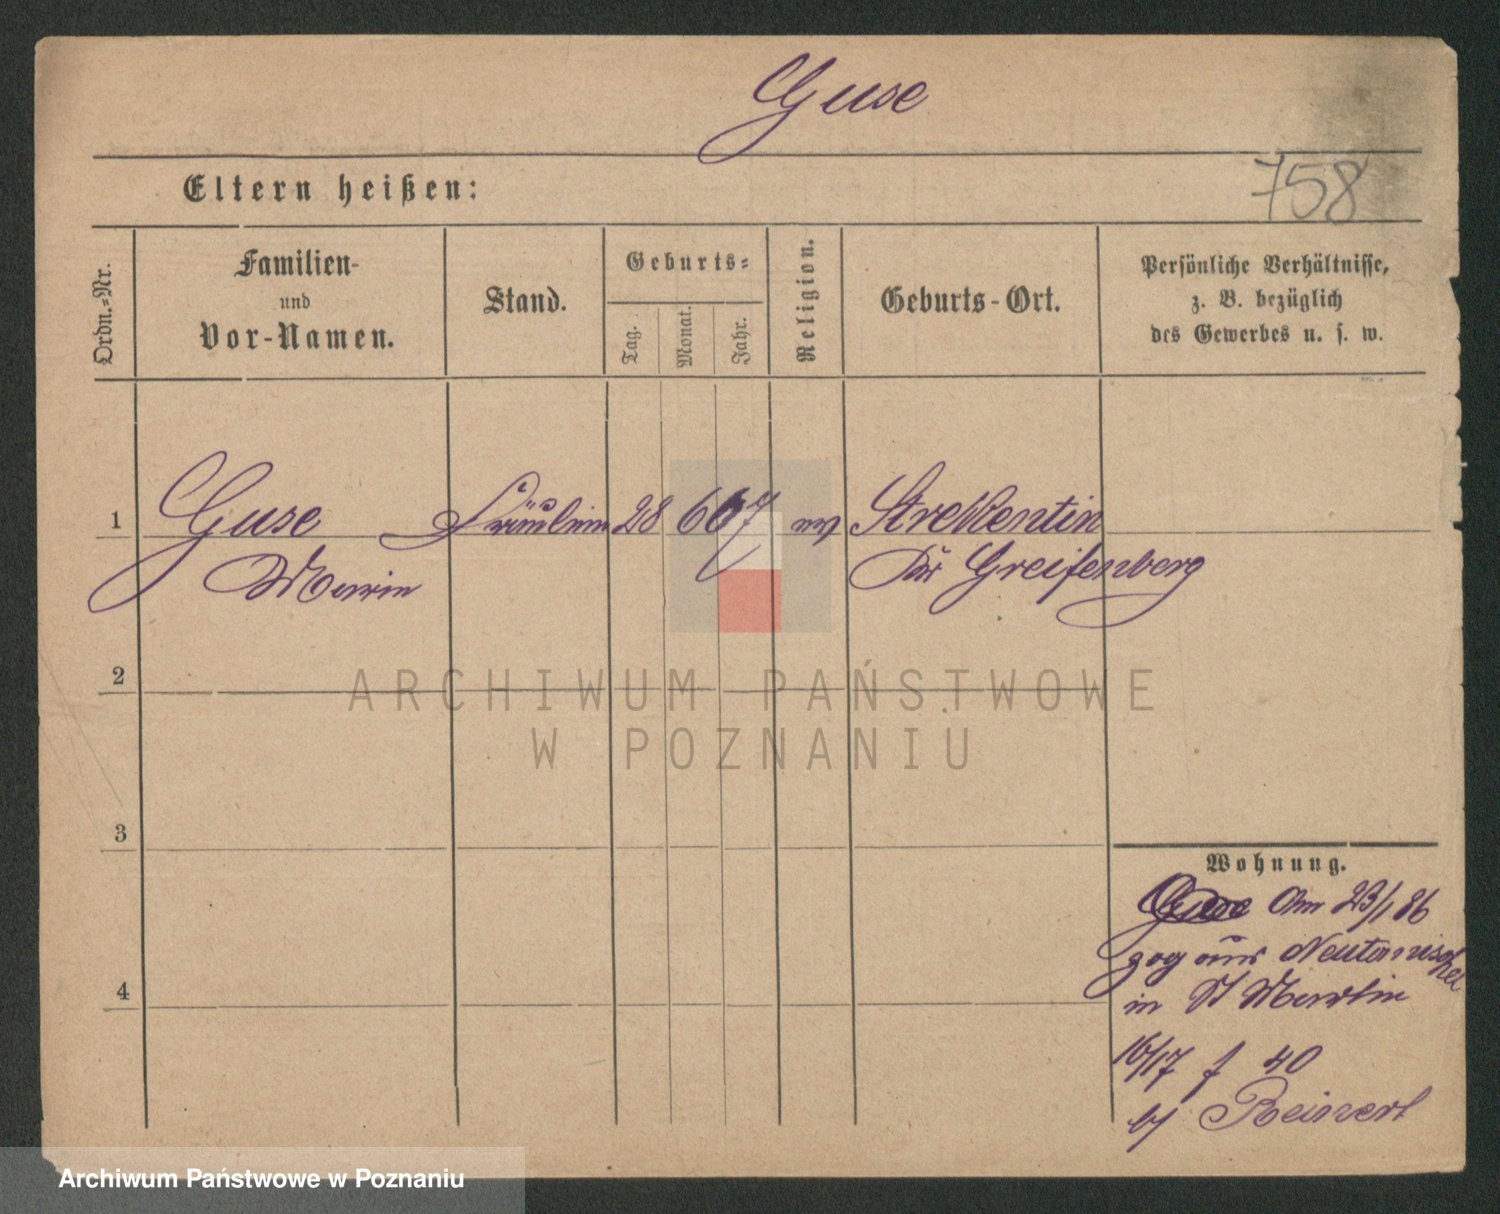 Guse
758
Eltern heißen:
Ordn.-Nr.
Familien-
und
Vor-Namen.
Stand.
Geburts-
Tag.
Monat.
Jahr.
Religion.
Geburts-Ort.
Persönliche Verhältnisse,
z. B. bezüglich
des Gewerbes u. s. w.
1 Guse Fräulein 28 6 67 ev Strekentin
Marie Kr Greifenberg
2
ARCHIWUM PAŃSTWOWE
W POZNANIU
3
Wohnung.
Guse Am 23/1 86
zog aus Neutomischel
4
in St Martin
16/17 f 40
b/ Reinert
Archiwum Państwowe w Poznaniu